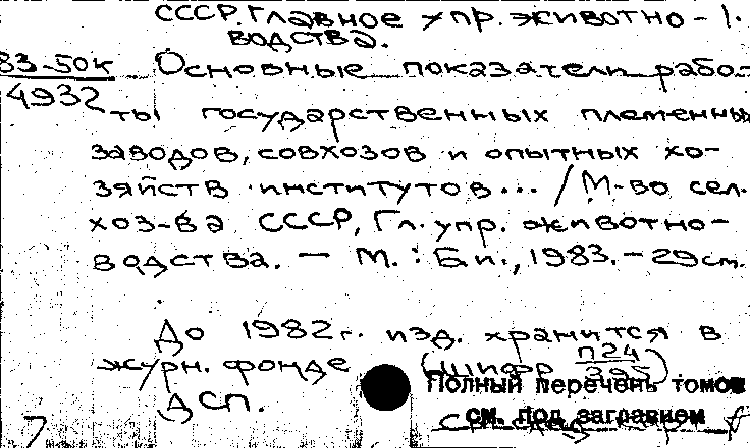 СССР. Главное упр. животно-
водства.
83-50к
4932
Основные показатели рабо-
ты государственных племенных
заводов, совхозов и опытных хо-
зяйств институтов... / М-во сел.
хоз-ва СССР, Гл. упр. животно-
водства. — М. : Б.и., 1983. - 29 см.
До 1982 г. изд. хранится в
журн. фонде (шифр П24/395)
ДСП.
Полный перечень томов
см. под заглавием